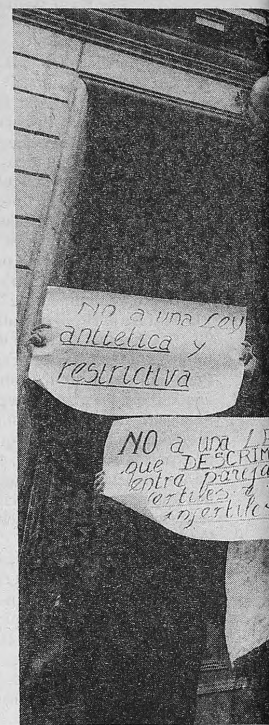 NO a una Ley
antietica y
restrictiva
NO a una LE
que DESCRIM
entre pareja
ertiles y
infertiles